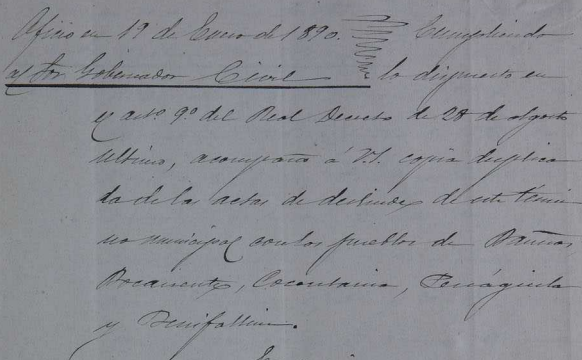 Oficio en 19 de Enero de 1890. Cumpliendo
al Sor Gobernador Civil lo dispuesto en
el artº 9º del Real Decreto de 28 de agosto
último, acompaño á V.I. copia duplica
da de la actas de deslindes de este térmi
no municipal con los pueblos de
Bocairente, Cocentaina, Penáguila
y Benifallim.